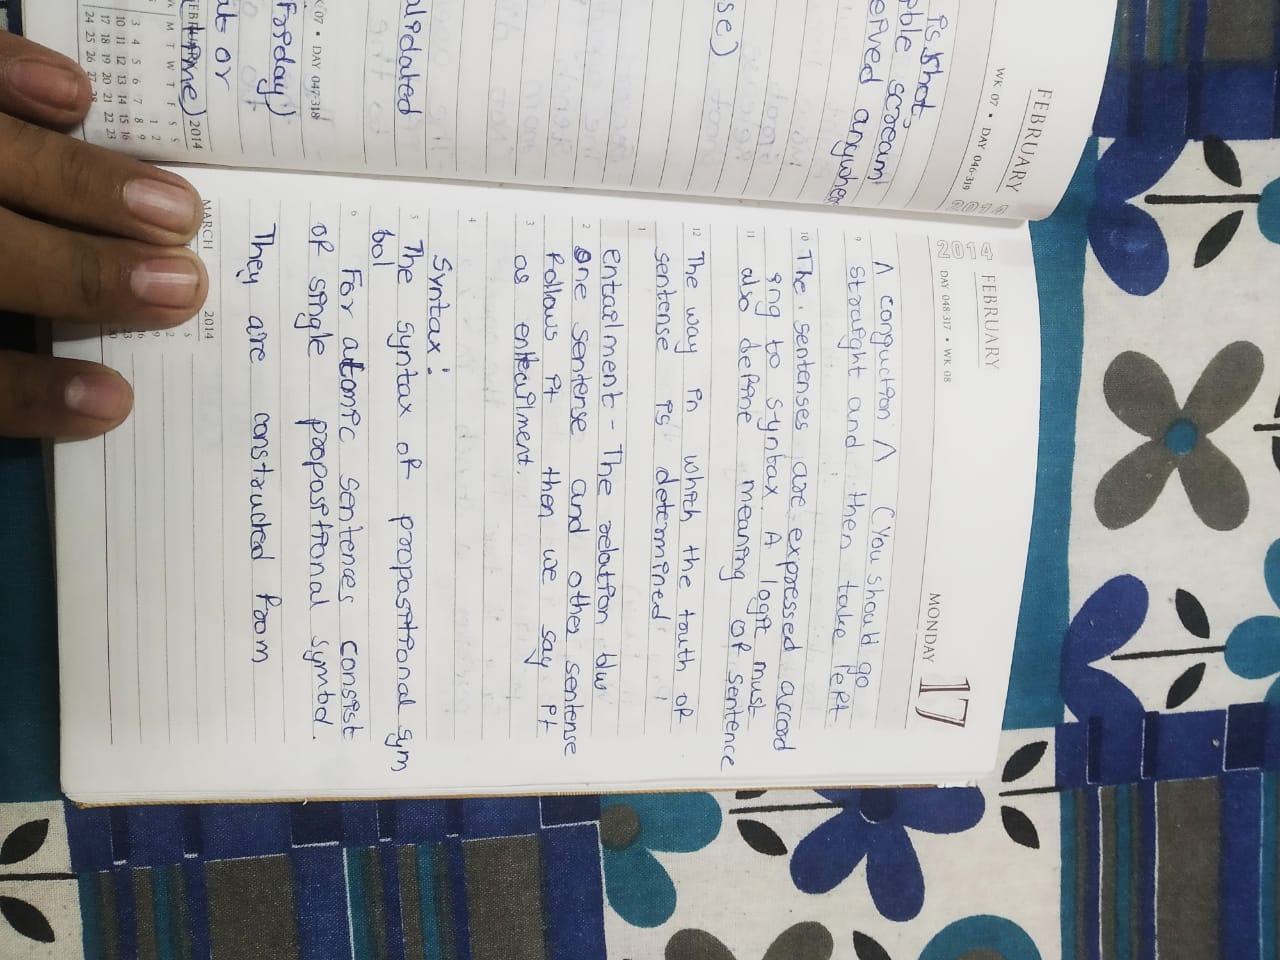 FEBRUARY
WK 07 • DAY 046-319
2014
is shot,
scream
anywher
se)
alidated
07 • DAY 047-318
Friday)
at or
time)
FEBRUARY 2014
WK M T W T F S S
1 2
3 4 5 6 7 8 9
10 11 12 13 14 15 16
17 18 19 20 21 22 23
24 25 26 27 28
2014
FEBRUARY
DAY 048-317 • WK 08
MONDAY 17
Λ conguction Λ (You should go
9 straight and then take left
10 The sentenses are expressed accord
ing to syntax. A logic must
11 also define meaning of sentence
12 The way in which the touth of
sentense is determined
1
entailment - The relation b/w
2 one sentense and other sentense
follows it then we say it
3 as entailment.
4
Syntax:
5 The syntax of propositional sym
bol
6 For atomic sentences consist
of single propositional symbol.
They are constructed from
MARCH 2014
S
2
9
16
23
30